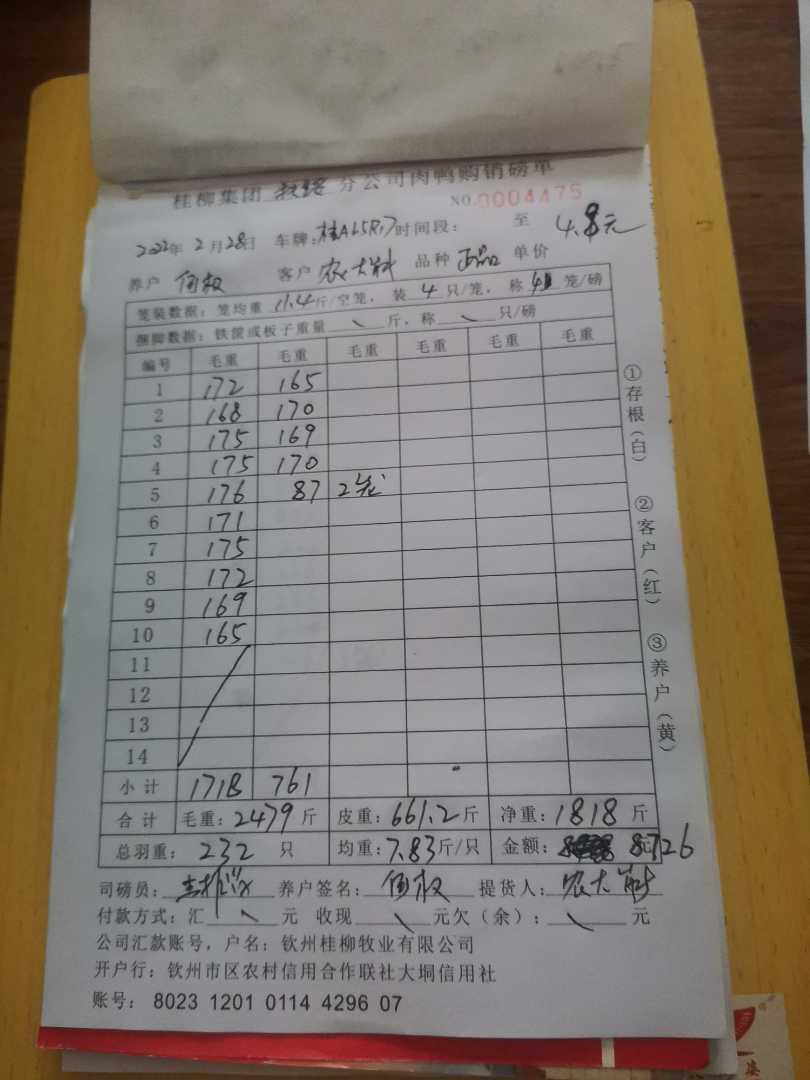 桂柳集团 分公司肉鸭购销磅单
NO.0004475
2022年 2月28日 车牌:桂A65R 时间段: 至 4.8元
养户 伍权 客户 农大 品种 正品 单价
笼装数据:笼均重 11.4斤/空笼, 装 4 只/笼, 称 4 笼/磅
捆脚数据:铁筐或板子重量 \ 斤,称 \ 只/磅
编号 毛重 毛重 毛重 毛重 毛重 毛重
1 172 165
2 168 170
3 175 169
4 175 170
5 176 87 2笼
6 171
7 175
8 172
9 169
10 165
11
12
13
14
小计 1718 761
合计 毛重:2479斤 皮重:661.2斤 净重:1818斤
总羽重: 232 只 均重:7.83斤/只 金额: 元 8726
司磅员: 养户签名: 伍权 提货人: 农大
付款方式:汇 \ 元 收现 \ 元欠(余): \ 元
公司汇款账号,户名:钦州桂柳牧业有限公司
开户行:钦州市区农村信用合作联社大垌信用社
账号: 8023 1201 0114 4296 07
①存根(白)
②客户(红)
③养户(黄)